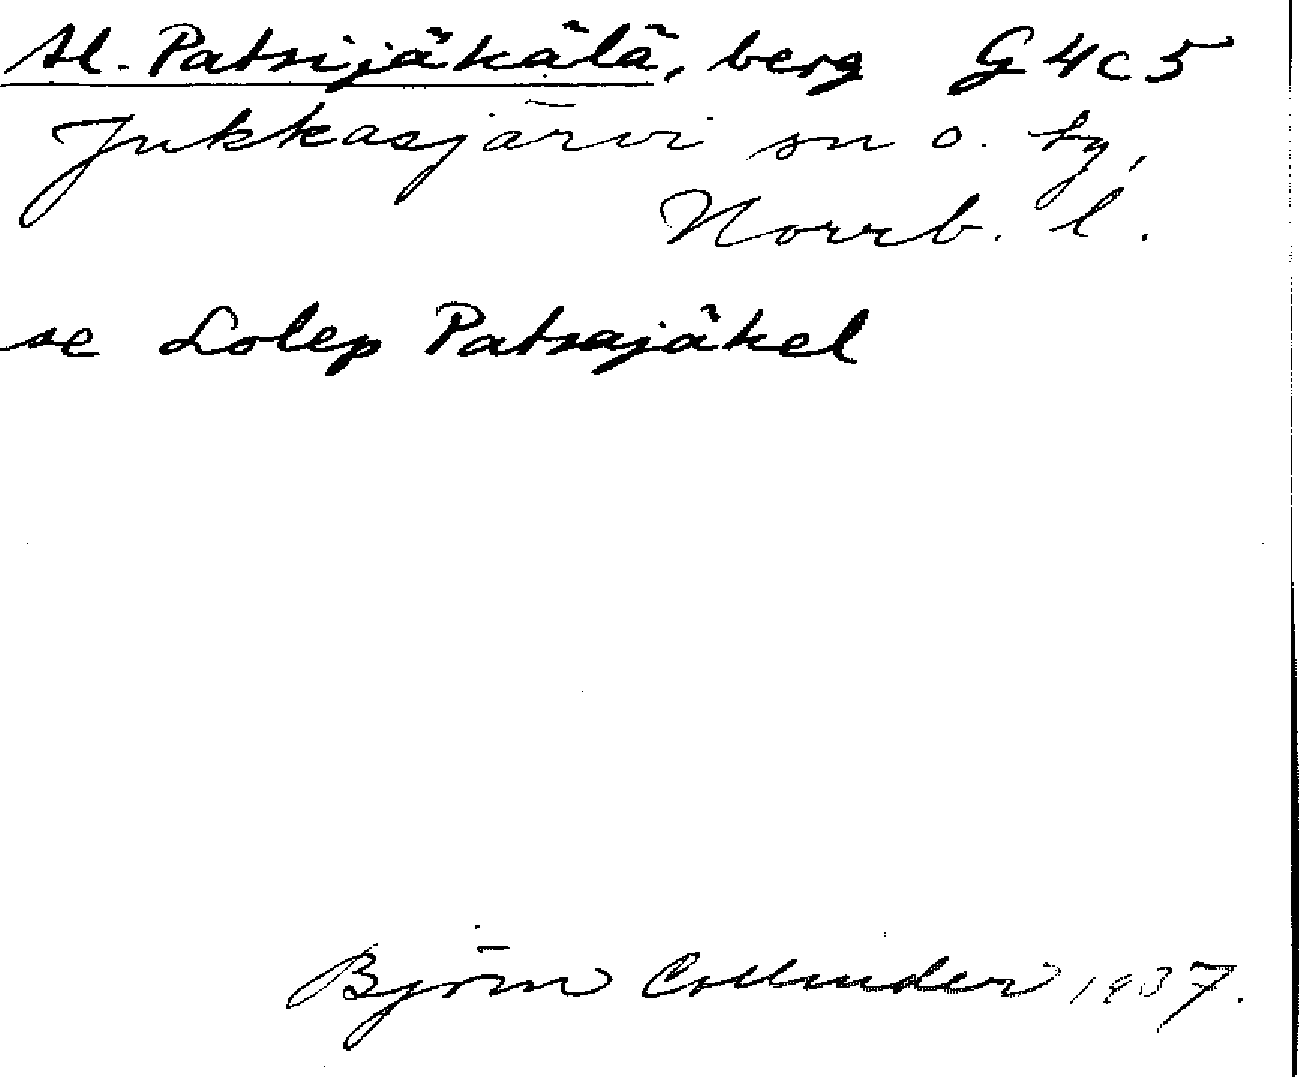 Al. Patsijäkälä, berg G4c5
Jukkasjärvi sn o. tg,
Norrb. l.
se Lolep Patsajäkel
Björn Collinder 1937.